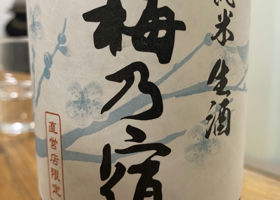 純米 生酒
梅乃宿
直営店限定